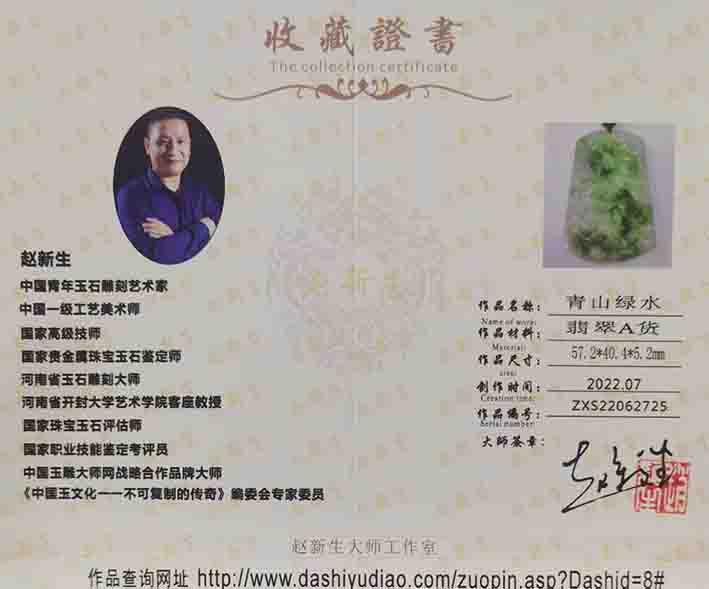 收藏證書
The collection certificate
赵新生
中国青年玉石雕刻艺术家
中国一级工艺美术师
国家高级技师
国家贵金属珠宝玉石鉴定师
河南省玉石雕刻大师
河南省开封大学艺术学院客座教授
国家珠宝玉石评估师
国家职业技能鉴定考评员
中国玉雕大师网战略合作品牌大师
《中国玉文化一一不可复制的传奇》编委会专家委员
作品名称: 青山绿水
Name of work:
作品材料: 翡翠A货
Material:
作品尺寸: 57.2*40.4*5.2mm
area:
创作时间: 2022.07
Creation time:
作品编号: ZXS22062725
Serial number:
大师签章:
赵新生
赵新生大师工作室
作品查询网址 http://www.dashiyudiao.com/zuopin.asp?Dashid=8#